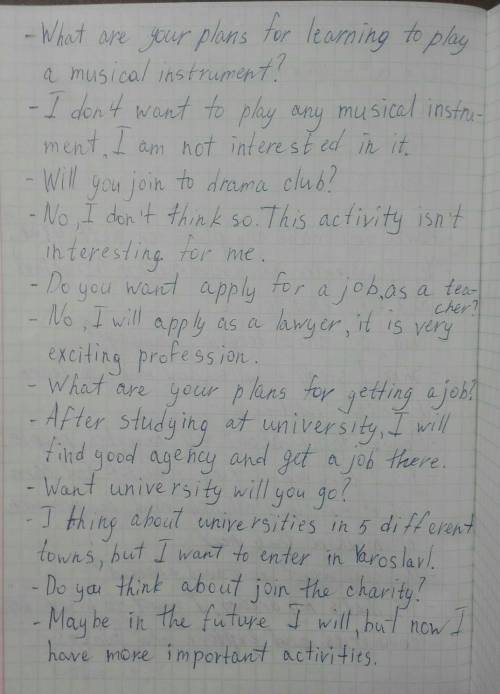 - What are your plans for learning to play
a musical instrument?
- I don4 want to play any musical instru-
ment, I am not interested in it.
- Will you join to drama club?
- No, I don't think so. This activity isn't
interesting for me.
- Do you want apply for a job, as a tea-
cher?
- No, I will apply as a lawyer, it is very
exciting profession.
- What are your plans for getting a job?
- After studying at university, I will
find good agency and get a job there.
- Want university will you go?
- I thing about universities in 5 different
towns, but I want to enter in Yaroslavl.
- Do you think about join the charity?
- Maybe in the future I will, but now I
have more important activities.